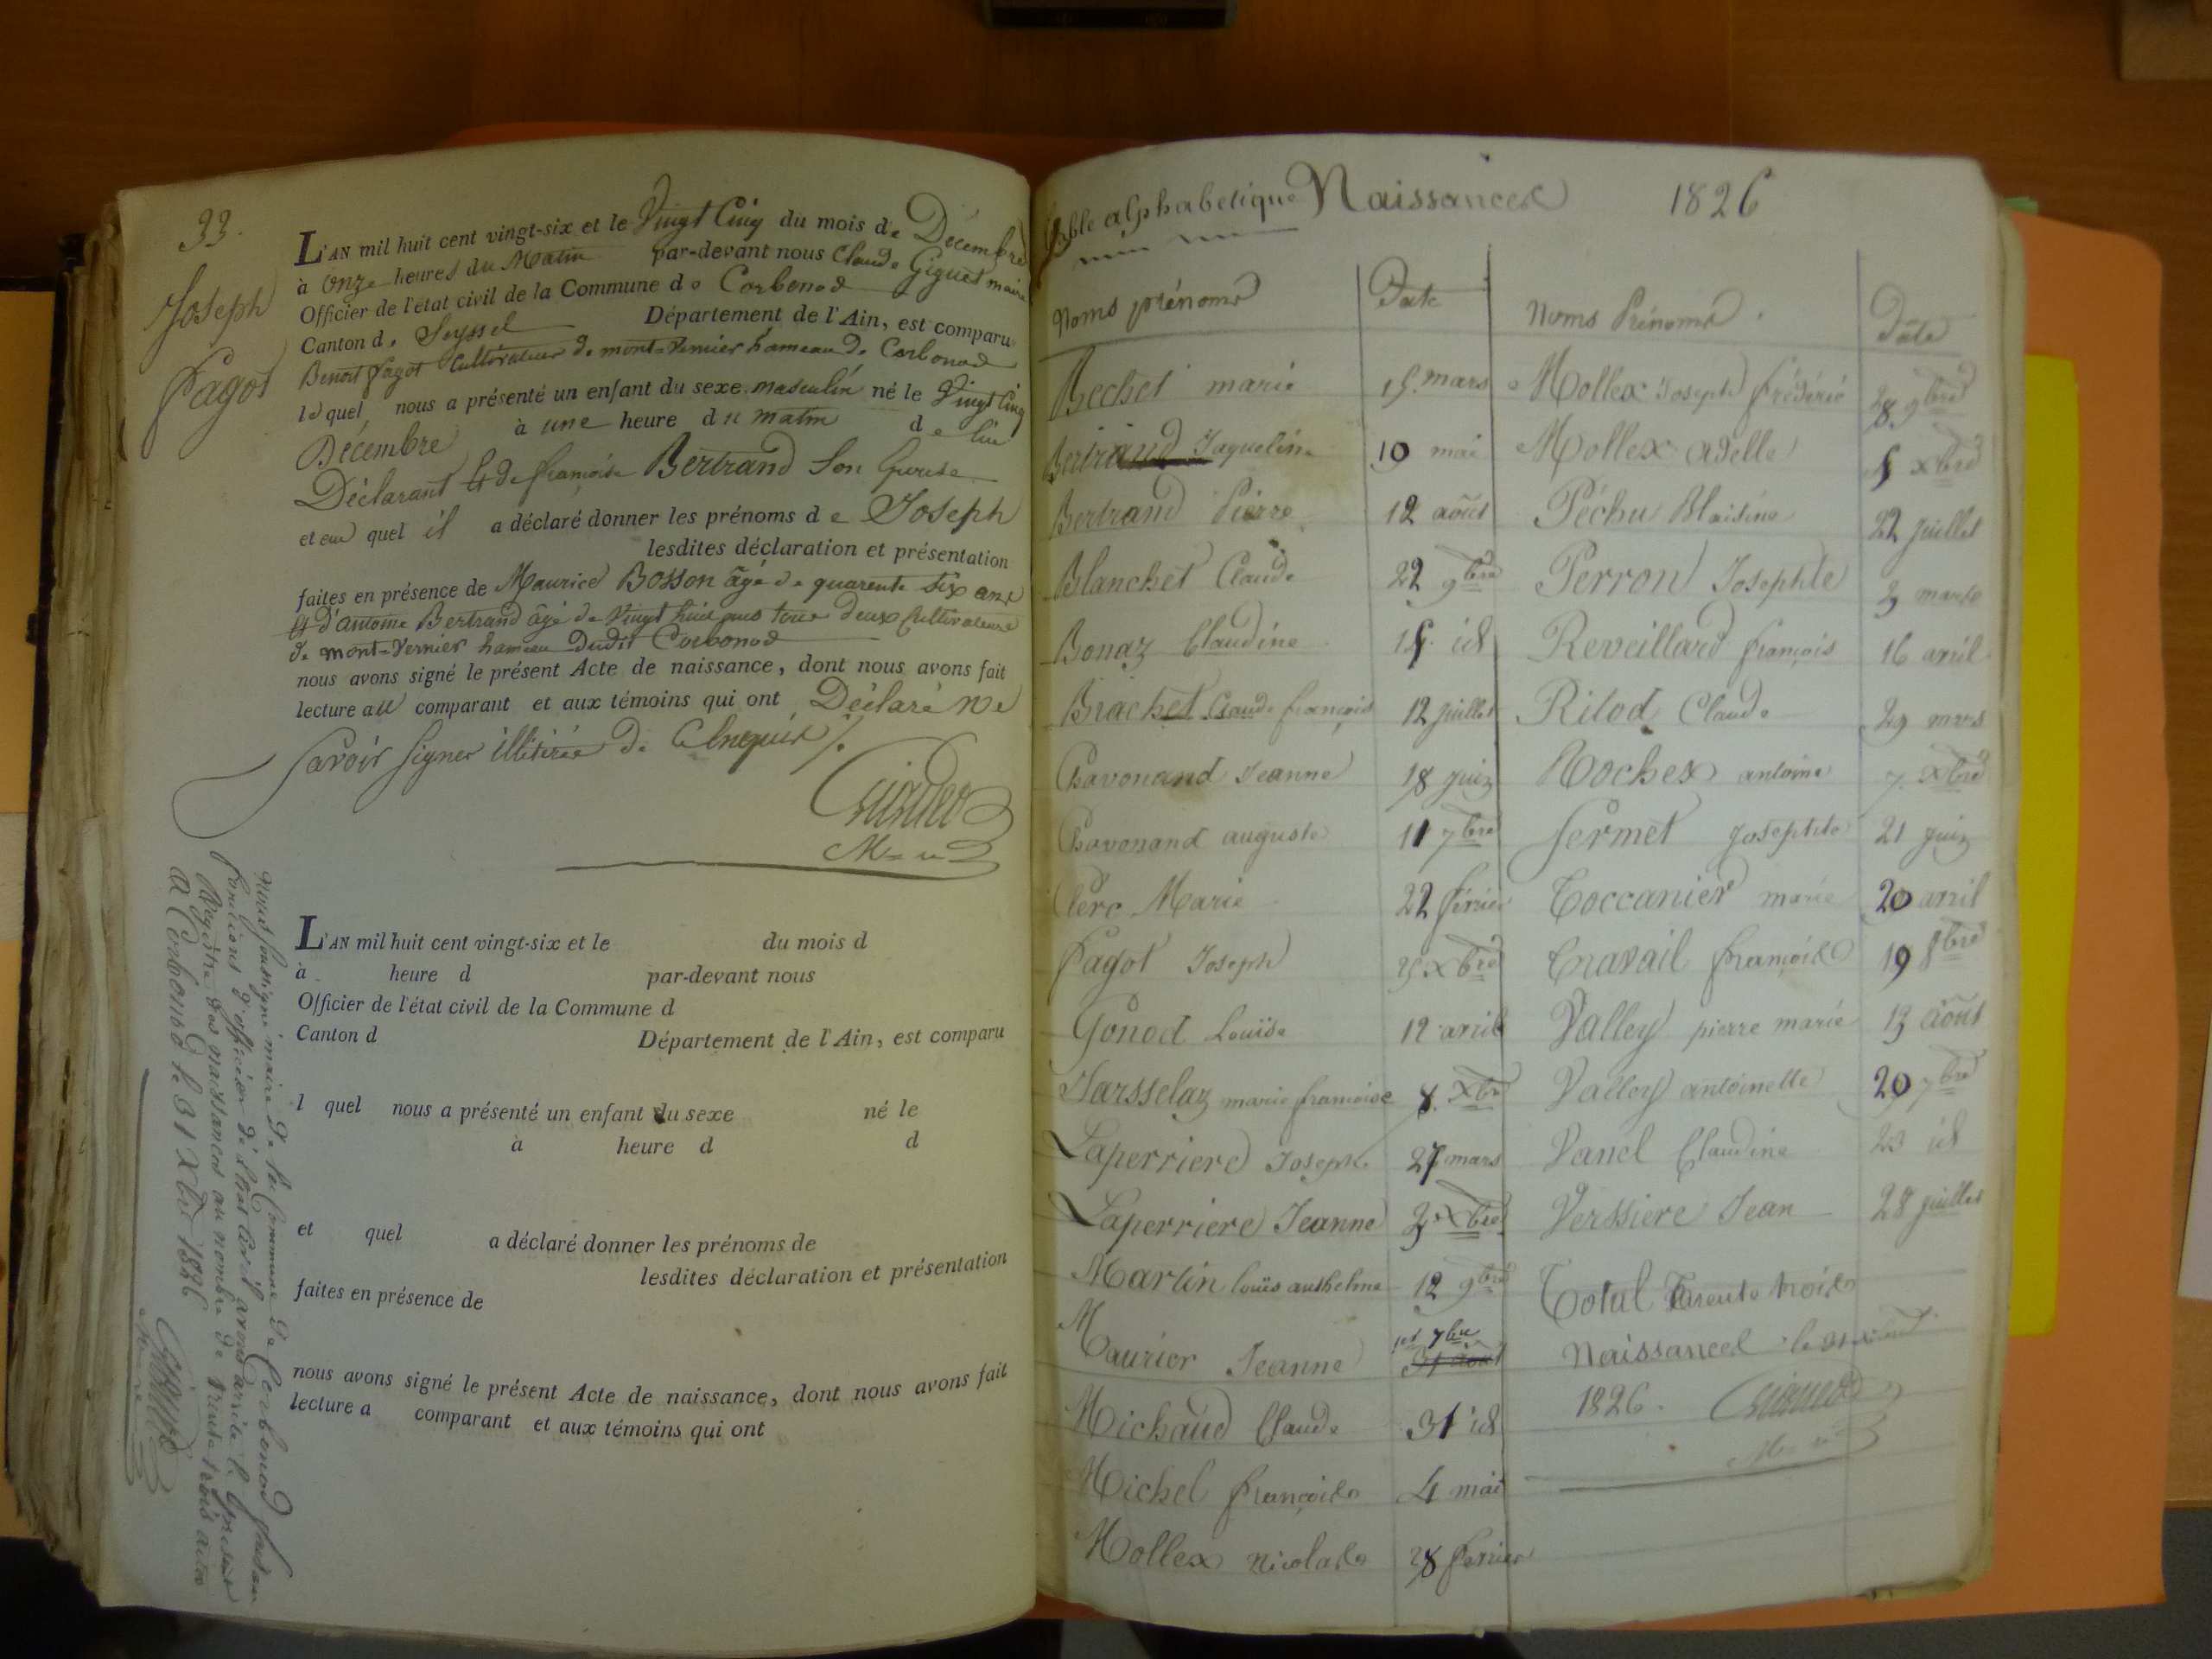 33.
Joseph
Fagot
L'AN mil huit cent vingt-six et le Vingt Cinq du mois de Décembre
à Onze heures du Matin par-devant nous Claude Giguet maire
Officier de l'état civil de la Commune de Corbonod
Canton de Seyssel Département de l'Ain, est comparu
Benoit fagot Cultivateur de mont-Vernier hameau de Corbonod
lequel nous a présenté un enfant du sexe masculin né le Vingt Cinq
Décembre à une heure du matin de lui
Déclarant Et de françoise Bertrand Son Epouse
et au quel il a déclaré donner les prénoms de Joseph
lesdites déclaration et présentation
faites en présence de Maurice Bosson âgé de quarente Six ans
Et d'antoine Bertrand âgé de Vingt huit ans tous deux Cultivateurs
de mont-Vernier hameau Dudit Corbonod
nous avons signé le présent Acte de naissance, dont nous avons fait
lecture au comparant et aux témoins qui ont Déclaré Ne
Savoir Signer illitirés de Ce Enquis /.
L'AN mil huit cent vingt-six et le du mois d
à heure d par-devant nous
Officier de l'état civil de la Commune d
Canton d Département de l'Ain, est comparu
l quel nous a présenté un enfant du sexe né le
à heure d d
et quel a déclaré donner les prénoms de
lesdites déclaration et présentation
faites en présence de
nous avons signé le présent Acte de naissance, dont nous avons fait
lecture a comparant et aux témoins qui ont
Nous Soussigné maire de la Commune de Corbonod faisant
fonctions d'officier de l'état Civil avons arrêté le présent
Registre des naissances au nombre de trente trois actes
a Corbonod le 31 Xbre 1826
Table alphabetique Naissances 1826
Noms prénoms Date Noms Prénoms Date
Bechet marie 15 mars Mollex Joseph frédéric 28 9bre
Bertrand Jaqueline 19 mai Mollex adelle 5 xbre
Bertrand Pierre 12 août Péchu Blaisine 22 juillet
Blanchet Claude 22 9bre Perron Josephte 3 mars
Bonaz Claudine 15 id Reveillard françois 16 avril
Brachet Claude françois 12 juillet Ritod Claude 29 mars
Chavonand Jeanne 18 juin Rochex antoine 7 xbre
Chavonand auguste 11 7bre Sermet Josephte 21 juin
Clerc Marie 22 février Toccanier marie 20 avril
Fagot Joseph 25 xbre Travail françois 19 8bre
Gonod Louïse 12 avril Valley pierre marie 13 août
Jarsselaz marie françoise 8 Xbre Valley antoinette 20 7bre
Laperriere Joseph 27 mars Vanel Claudine 23 id
Laperriere Jeanne 3 Xbre Verssiere Jean 28 juillet
Martin louïs anthelme 12 9bre Total Trente trois
Maurier Jeanne 1er 7bre 31 août Naissances le 31 xbre
Michaud Claude 31 id 1826.
Michel françois 4 mai
Mollex Nicolas 28 fevrier